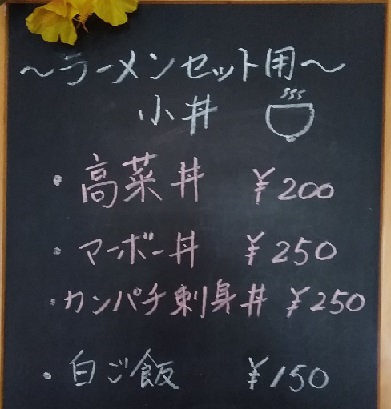 ～ラーメンセット用～
小丼
・高菜丼 ￥200
・マーボー丼 ￥250
・カンパチ刺身丼 ￥250
・白ご飯 ￥150